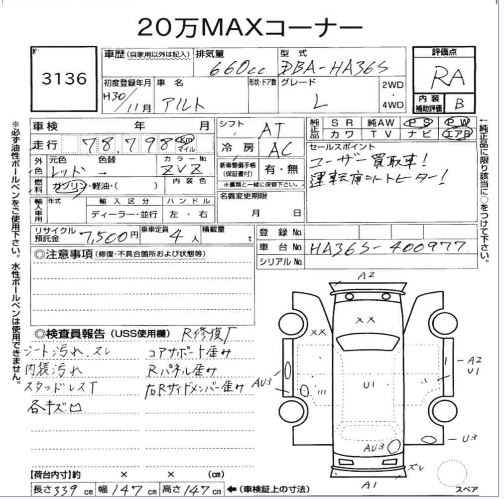 20万MAXコーナー
3136
車歴 (自家用以外は記入) 排気量 660cc 型式 DBA-HA36S
評価点 RA
初度登録年月 H30/11月 車名 アルト 形状・ドア数 グレード L 2WD・4WD
内装補助評価 B
車検 年 月 シフト AT 純正品 SR 純AW PS PW
走行 78,798 km マイル 冷房 AC 純正品 カワ TV ナビ エアB
外色 元色 レッド 色替 カラーNo ZVZ 内装色
新車整備手帳(保証書付) 有・無
※書類と一緒に保管下さい。
燃料 ガソリン・軽油・( )
セールスポイント
ユーザー買取車!
運転席シートヒーター!
輸入車用 年式 輸入区分 ディーラー・並行 ハンドル 左・右
名義変更期限 月 日
リサイクル預託金 7,500円 乗車定員 4人 積載量 t
登録No
車台No HA36S-400977
シリアルNo
◎注意事項 (修復・不具合箇所および状態等)
◎検査員報告 (USS使用欄) R修復ナ
シート汚れ、スレ コアサポート歪み
内張汚れ Rパネル歪み
スタッドレスT 右Rサイドメンバー歪み
各キズロ
A2
××
××
U1
AU3
A2
U1
AU3
U3
スレ
A1
スペア
【荷台内寸】約 × × cm
長さ 339cm 幅 147cm 高さ 147cm ←(車検証上の寸法)
※必ず油性ボールペンをご使用下さい。水性ボールペンは使用できません。
↑純正品に限り該当に○をつけて下さい。